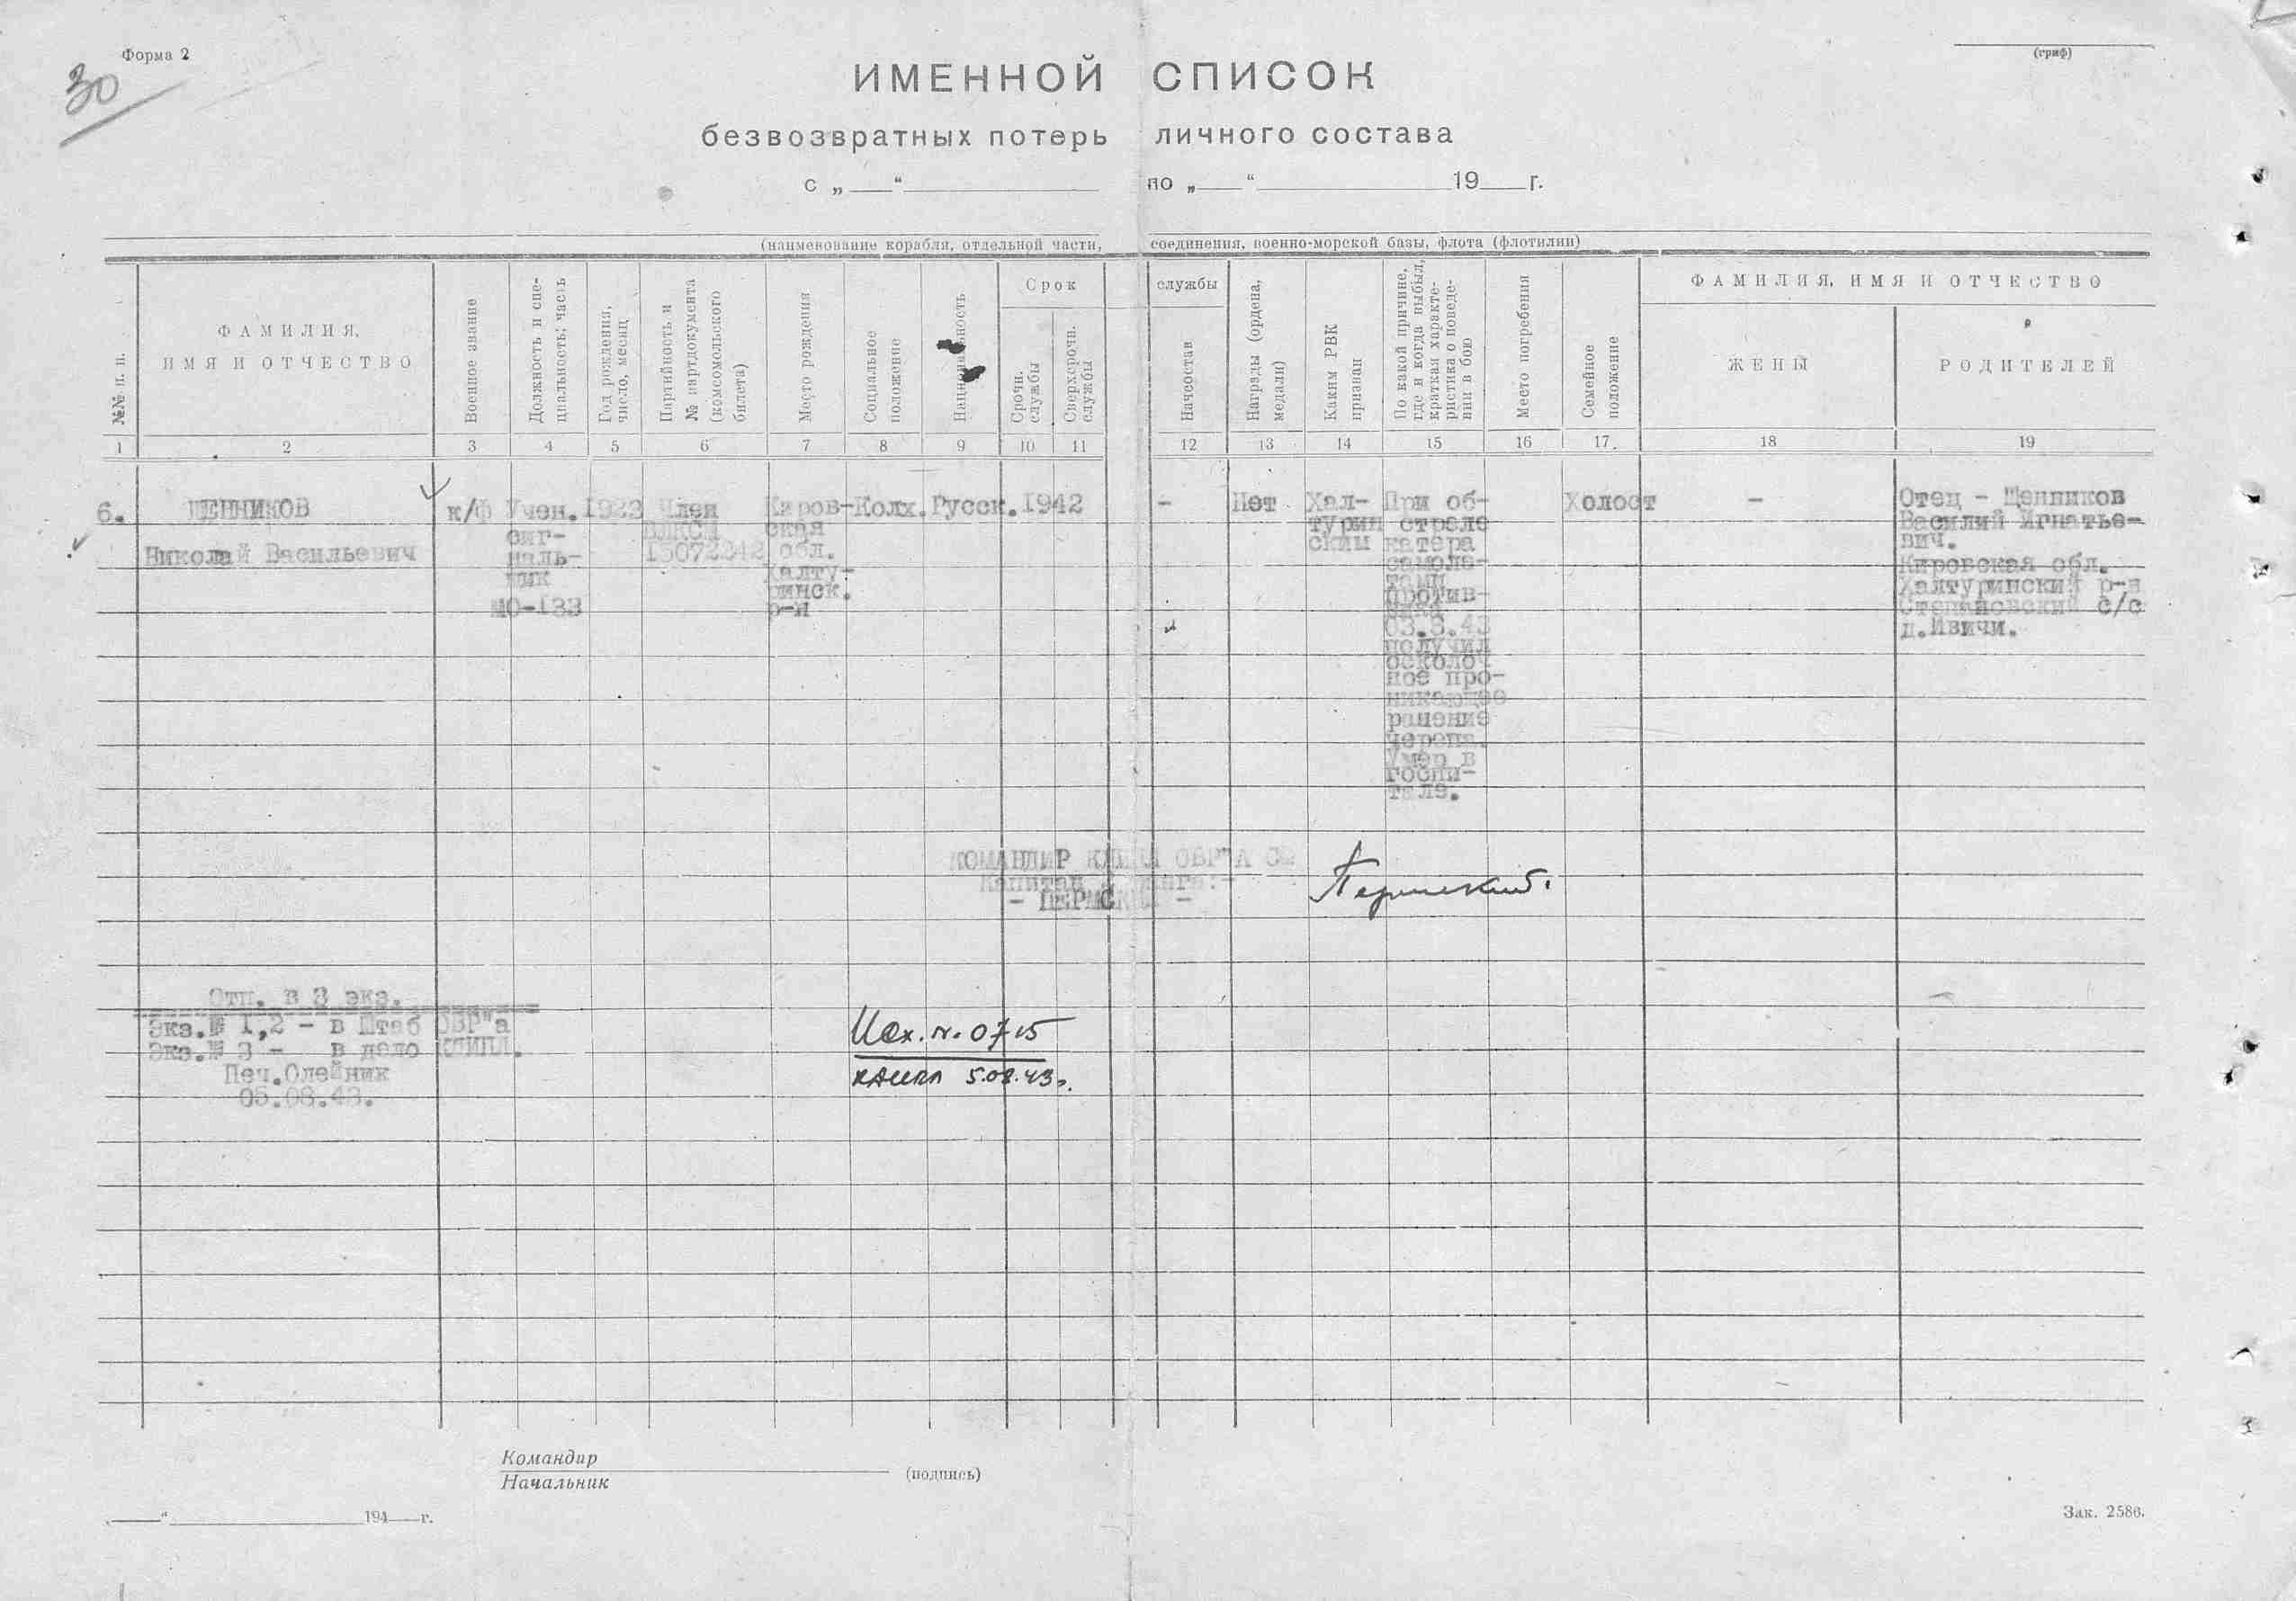 Форма 2
30
(гриф)
ИМЕННОЙ СПИСОК
безвозвратных потерь личного состава
с „ “ по „ “ 19 г.
(наименование корабля, отдельной части, соединения, военно-морской базы, флота (флотилии)
№№ п. п.
ФАМИЛИЯ,
ИМЯ И ОТЧЕСТВО
Военное звание
Должность и спе-
циальность; часть
Год рождения,
число, месяц
Партийность и
№ партдокумента
(комсомольского
билета)
Место рождения
Социальное
положение
Национальность
Срок службы
Срочн.
службы
Сверхсрочн.
службы
Начсостав
Награды (ордена,
медали)
Каким РВК
призван
По какой причине,
где и когда выбыл,
краткая характе-
ристика о поведе-
нии в бою
Место погребения
Семейное
положение
ФАМИЛИЯ, ИМЯ И ОТЧЕСТВО
ЖЕНЫ
РОДИТЕЛЕЙ
1 2 3 4 5 6 7 8 9 10 11 12 13 14 15 16 17. 18 19
6.
ЩЕННИКОВ
Николай Васильевич
к/ф
Учен.
сиг-
наль-
щик
МО-133
1923
Член
ВЛКСМ
15072242
Киров-
ская
обл.
Халту-
ринск.
р-н
Колх.
Русск.
1942
-
Нет
Хал-
турин
ским
При об-
стреле
катера
самоле-
тами
против-
ника
03.8.43
получил
осколоч
ное про-
никающее
ранение
черепа.
Умер в
госпи-
тале.
Холост
-
Отец - Щенников
Василий Игнатье-
вич.
Кировская обл.
Халтуринский р-н
Степановский с/с
д.Ивичи.
КОМАНДИР ОВР"А СФ
Капитан ранга:-
- ПЕРМСКИЙ -
Пермский.
Отп. в 3 экз.
Экз.№ 1,2 - в Штаб ОВР"а
Экз.№ 3 - в дело
Печ.Олейник
05.08.43.
Исх. №. 0715
5.08.43г.
Командир
Начальник
(подпись)
„ “ 194 г.
Зак. 2586.